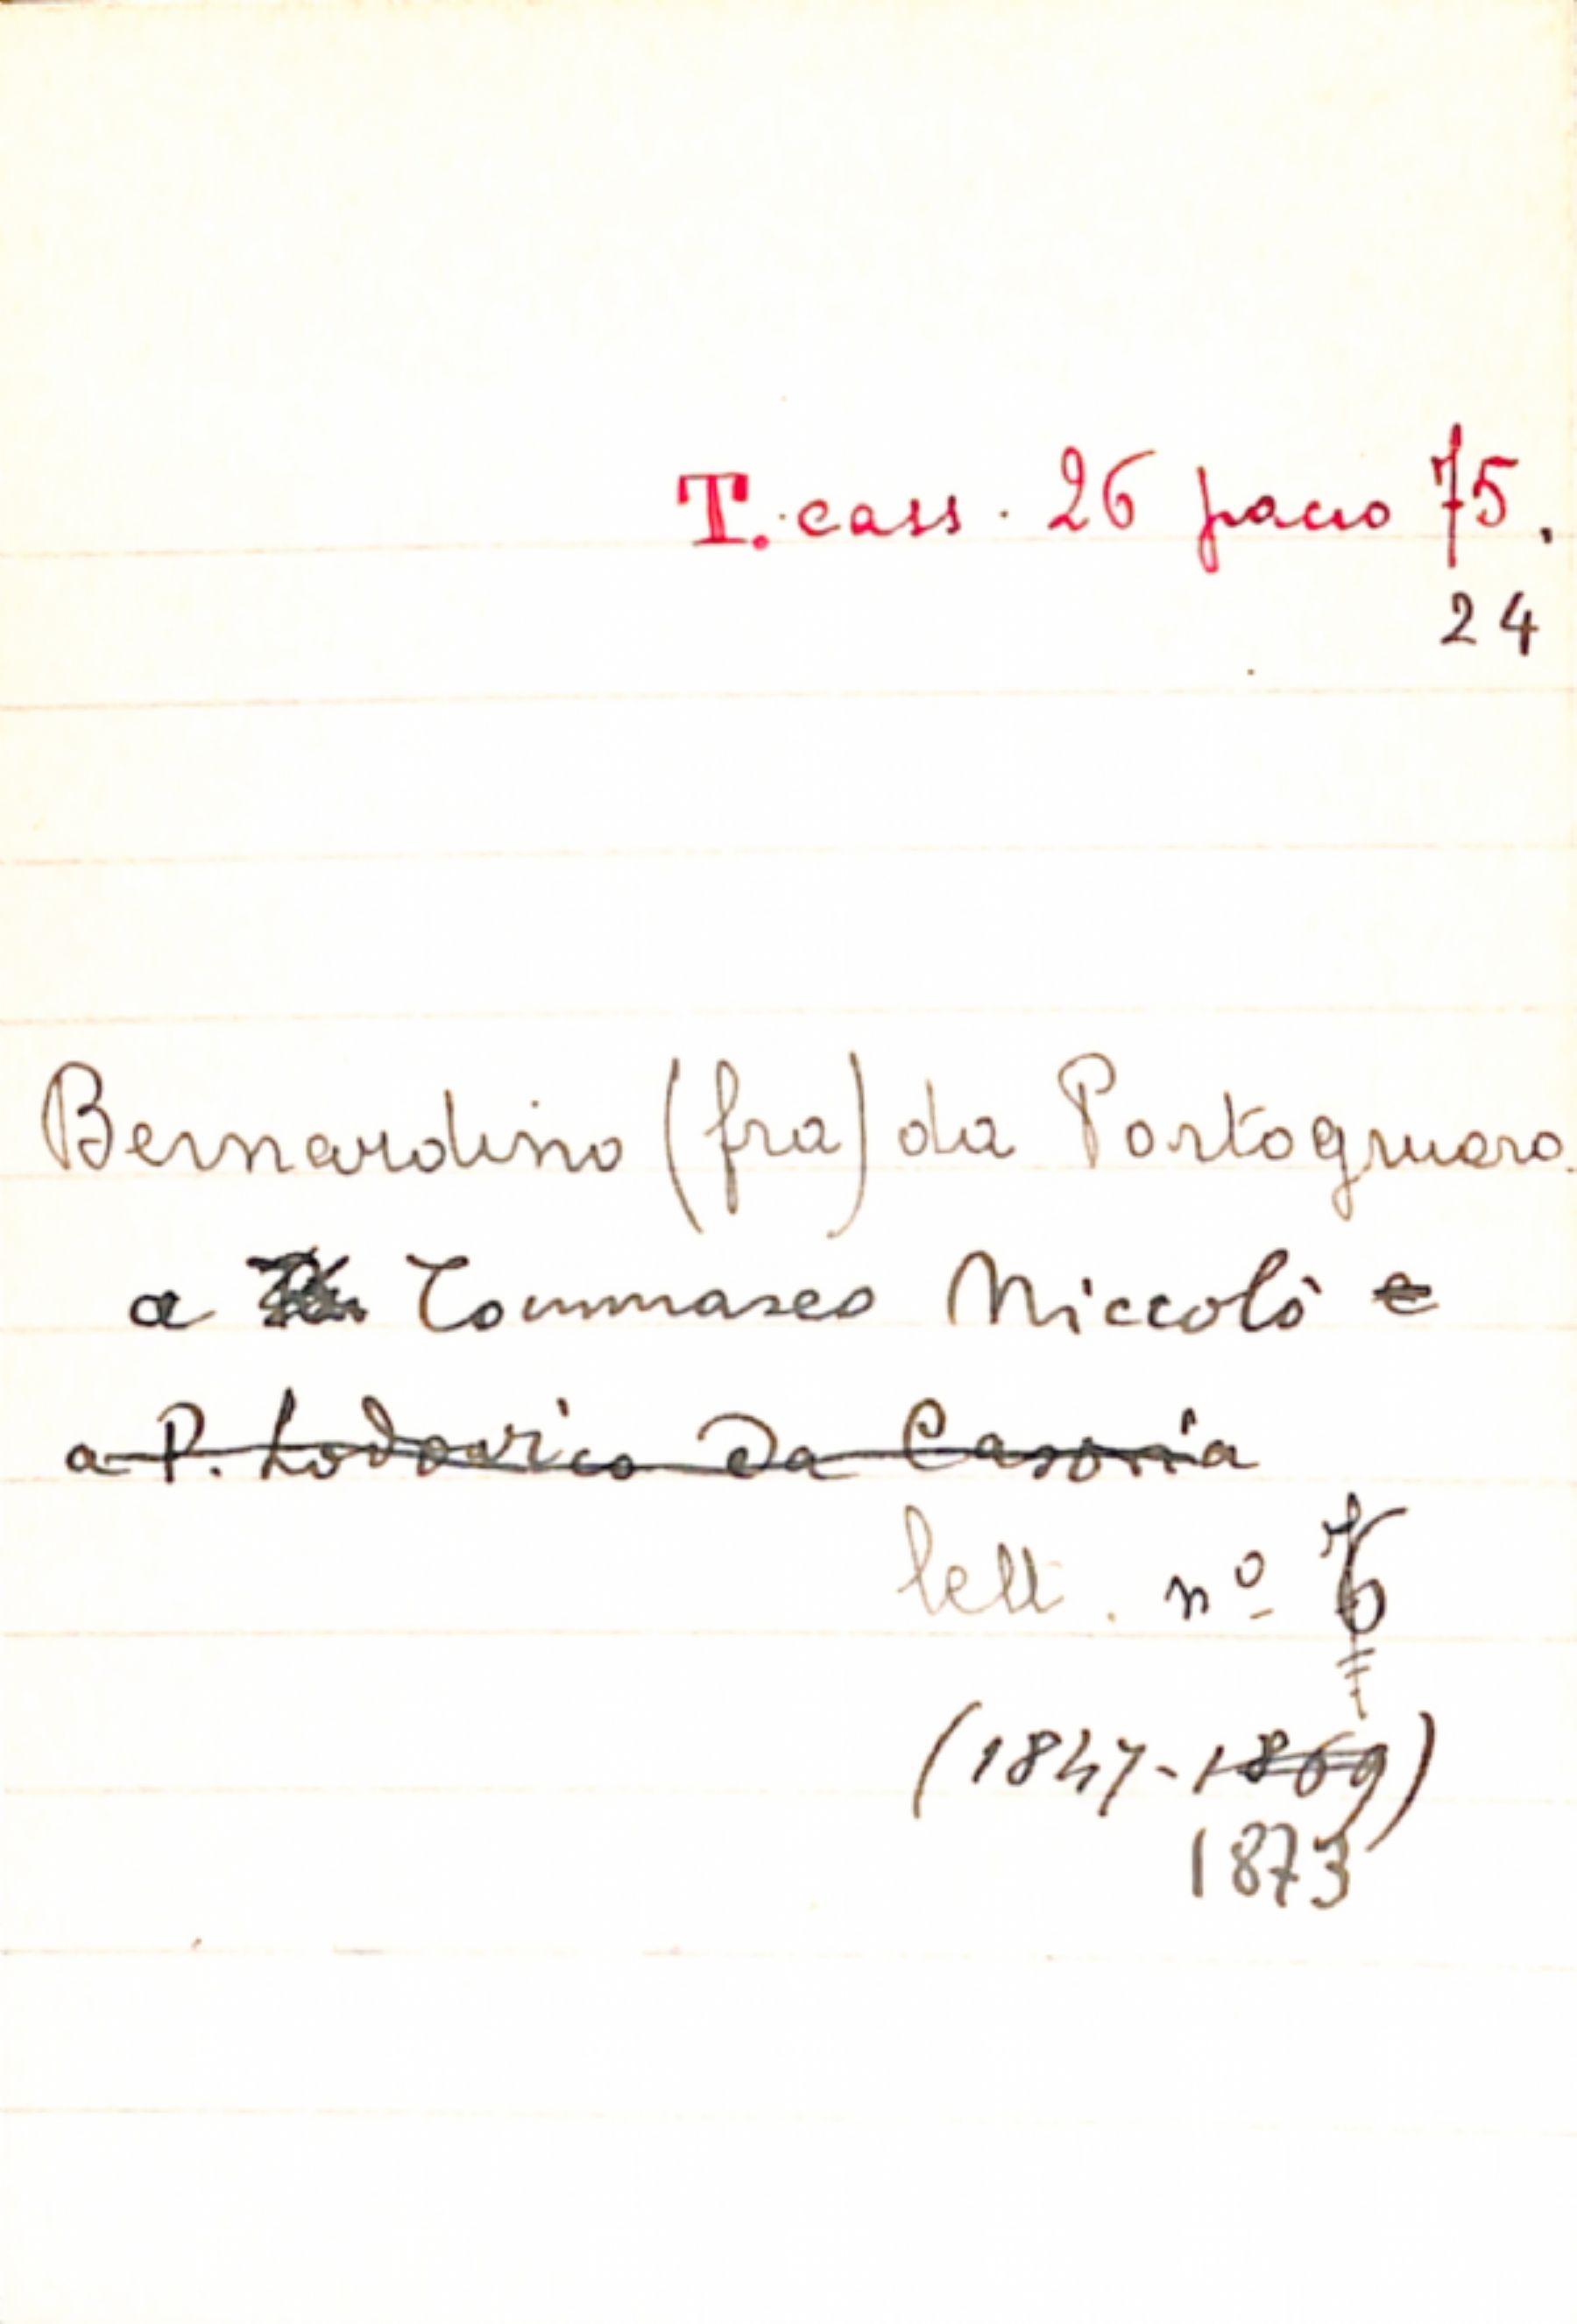 T. cass. 26 pacco 75.
24
Bernardino (fra) da Portogruaro.
a Tommaseo Niccolò e
a P. Lodovico da Casoria
lett. nº
(1847-1869)
1873